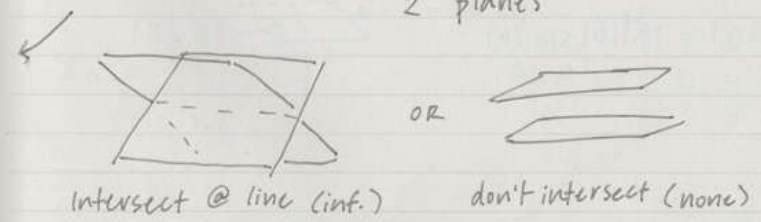 2 planes
OR
Intersect @ line (inf.)
don't intersect (none)